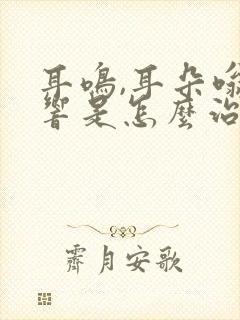 耳鳴,耳朵嗡
響是怎麼治
霽月安歌